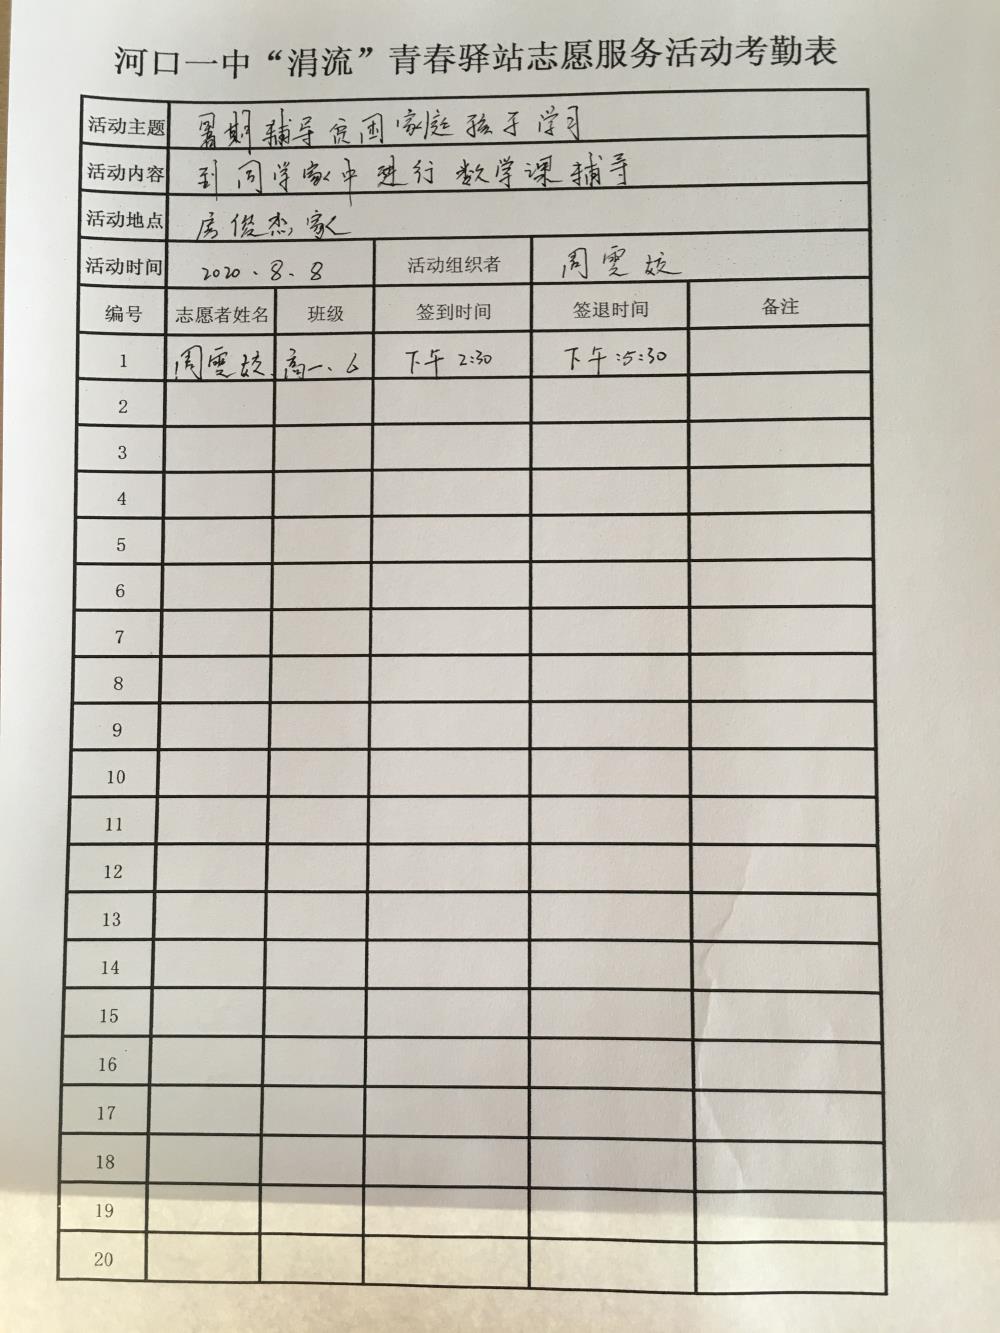 河口一中“涓流”青春驿站志愿服务活动考勤表
活动主题 暑期辅导贫困家庭孩子学习
活动内容 到同学家中进行数学课辅导
活动地点 房俊杰家
活动时间 2020.8.8 活动组织者 周雯姣
编号 志愿者姓名 班级 签到时间 签退时间 备注
1 周雯姣 高一.6 下午2:30 下午:5:30
2
3
4
5
6
7
8
9
10
11
12
13
14
15
16
17
18
19
20